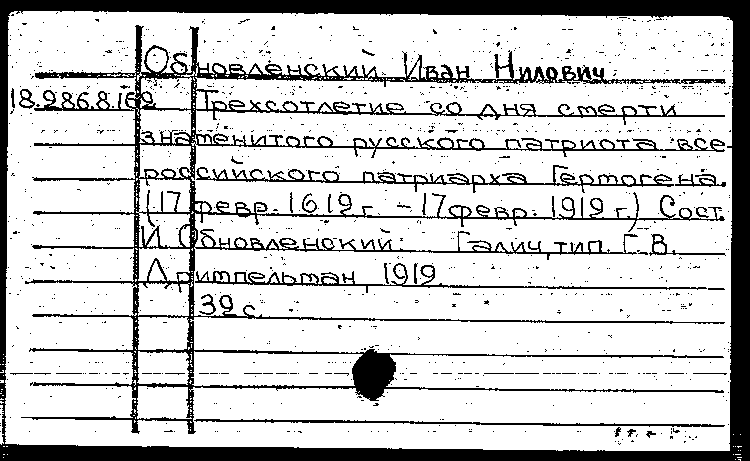 Обновленский, Иван Нилович
18.286.8.169 Трехсотлетие со дня смерти
знаменитого русского патриота все-
российского патриарха Гермогена.
(17 февр. 1612 г. - 17 февр. 1912 г.) Сост.
И. Обновленский. Галич, тип. Г.В.
Дритпельман, 1912.
32 с.